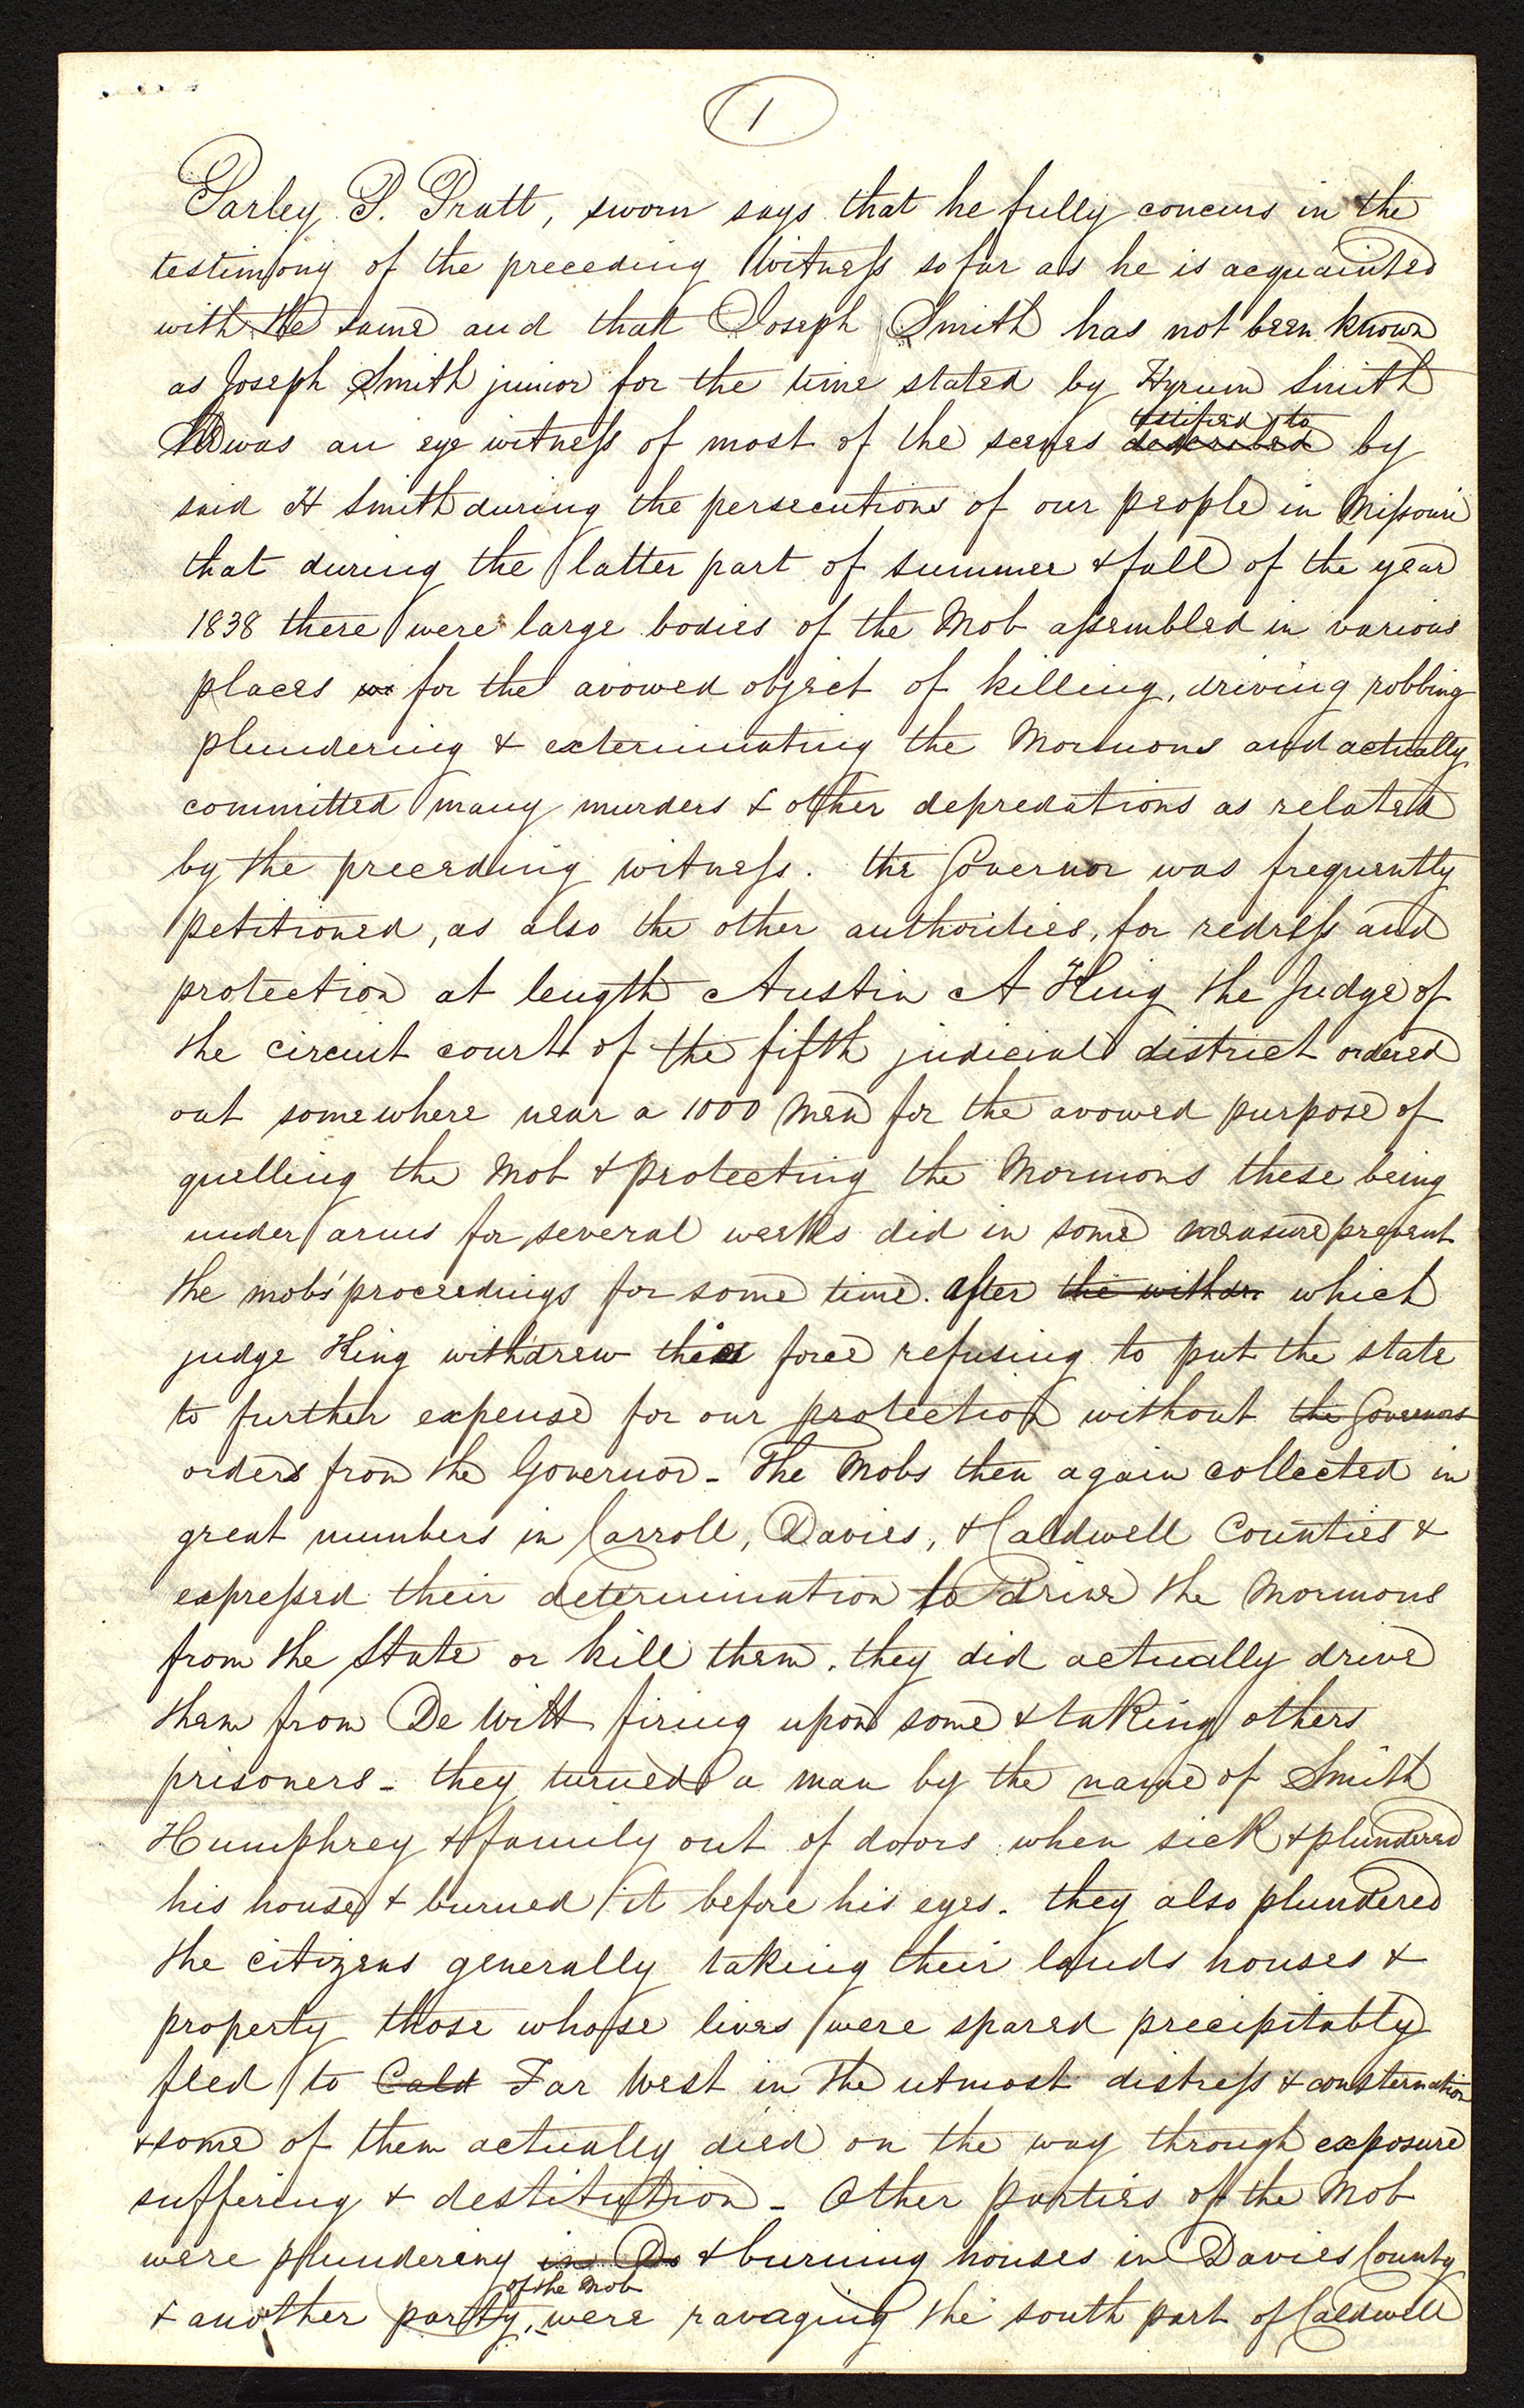 1
Parley P. Pratt, sworn says that he fully concurs in the
testimony of the preceding Witness so far as he is acquainted
with the same and that Joseph Smith has not been known
as Joseph Smith junior for the time stated by Hyrum Smith
was an eye witness of most of the scenes described testified to by
said H Smith during the persecutions of our people in Missouri
that during the latter part of summer & fall of the year
1838 there were large bodies of the Mob assembled in various
places for the avowed object of killing, driving robbing
plundering & exterminating the Mormons and actually
committed many murders & other depredations as related
by the preceding witness. the Governor was frequently
petitioned, as also the other authorities, for redress and
protection at length Austin A King the Judge of
the circuit court of the fifth judicial district ordered
out somewhere near a 1000 Men for the avowed purpose of
quelling the Mob & protecting the Mormons these being
under arms for several weeks did in some measure prevent
the mobs' proceedings for some time. after the withdr which
judge King withdrew force refusing to put the state
to further expense for our protection without the Governors
orders from the Governor - The Mobs then again collected in
great numbers in Carroll, Davies, & Caldwell Counties &
expressed their determination to drive the Mormons
from the State or kill them. they did actually drive
them from De Witt firing upon some & taking others
prisoners - they turned a man by the name of Smith
Humphrey & family out of doors when sick & plundered
his house & burned it before his eyes. they also plundered
the citizens generally taking their lands houses &
property those whose lives were spared precipitably
fled to Cald Far West in the utmost distress & consternation
& some of them actually died on the way through exposure
suffering & destitution - Other parties of the Mob
were plundering in Da & burning houses in Davies County
& another party of the Mob, were ravaging the south part of Caldwell